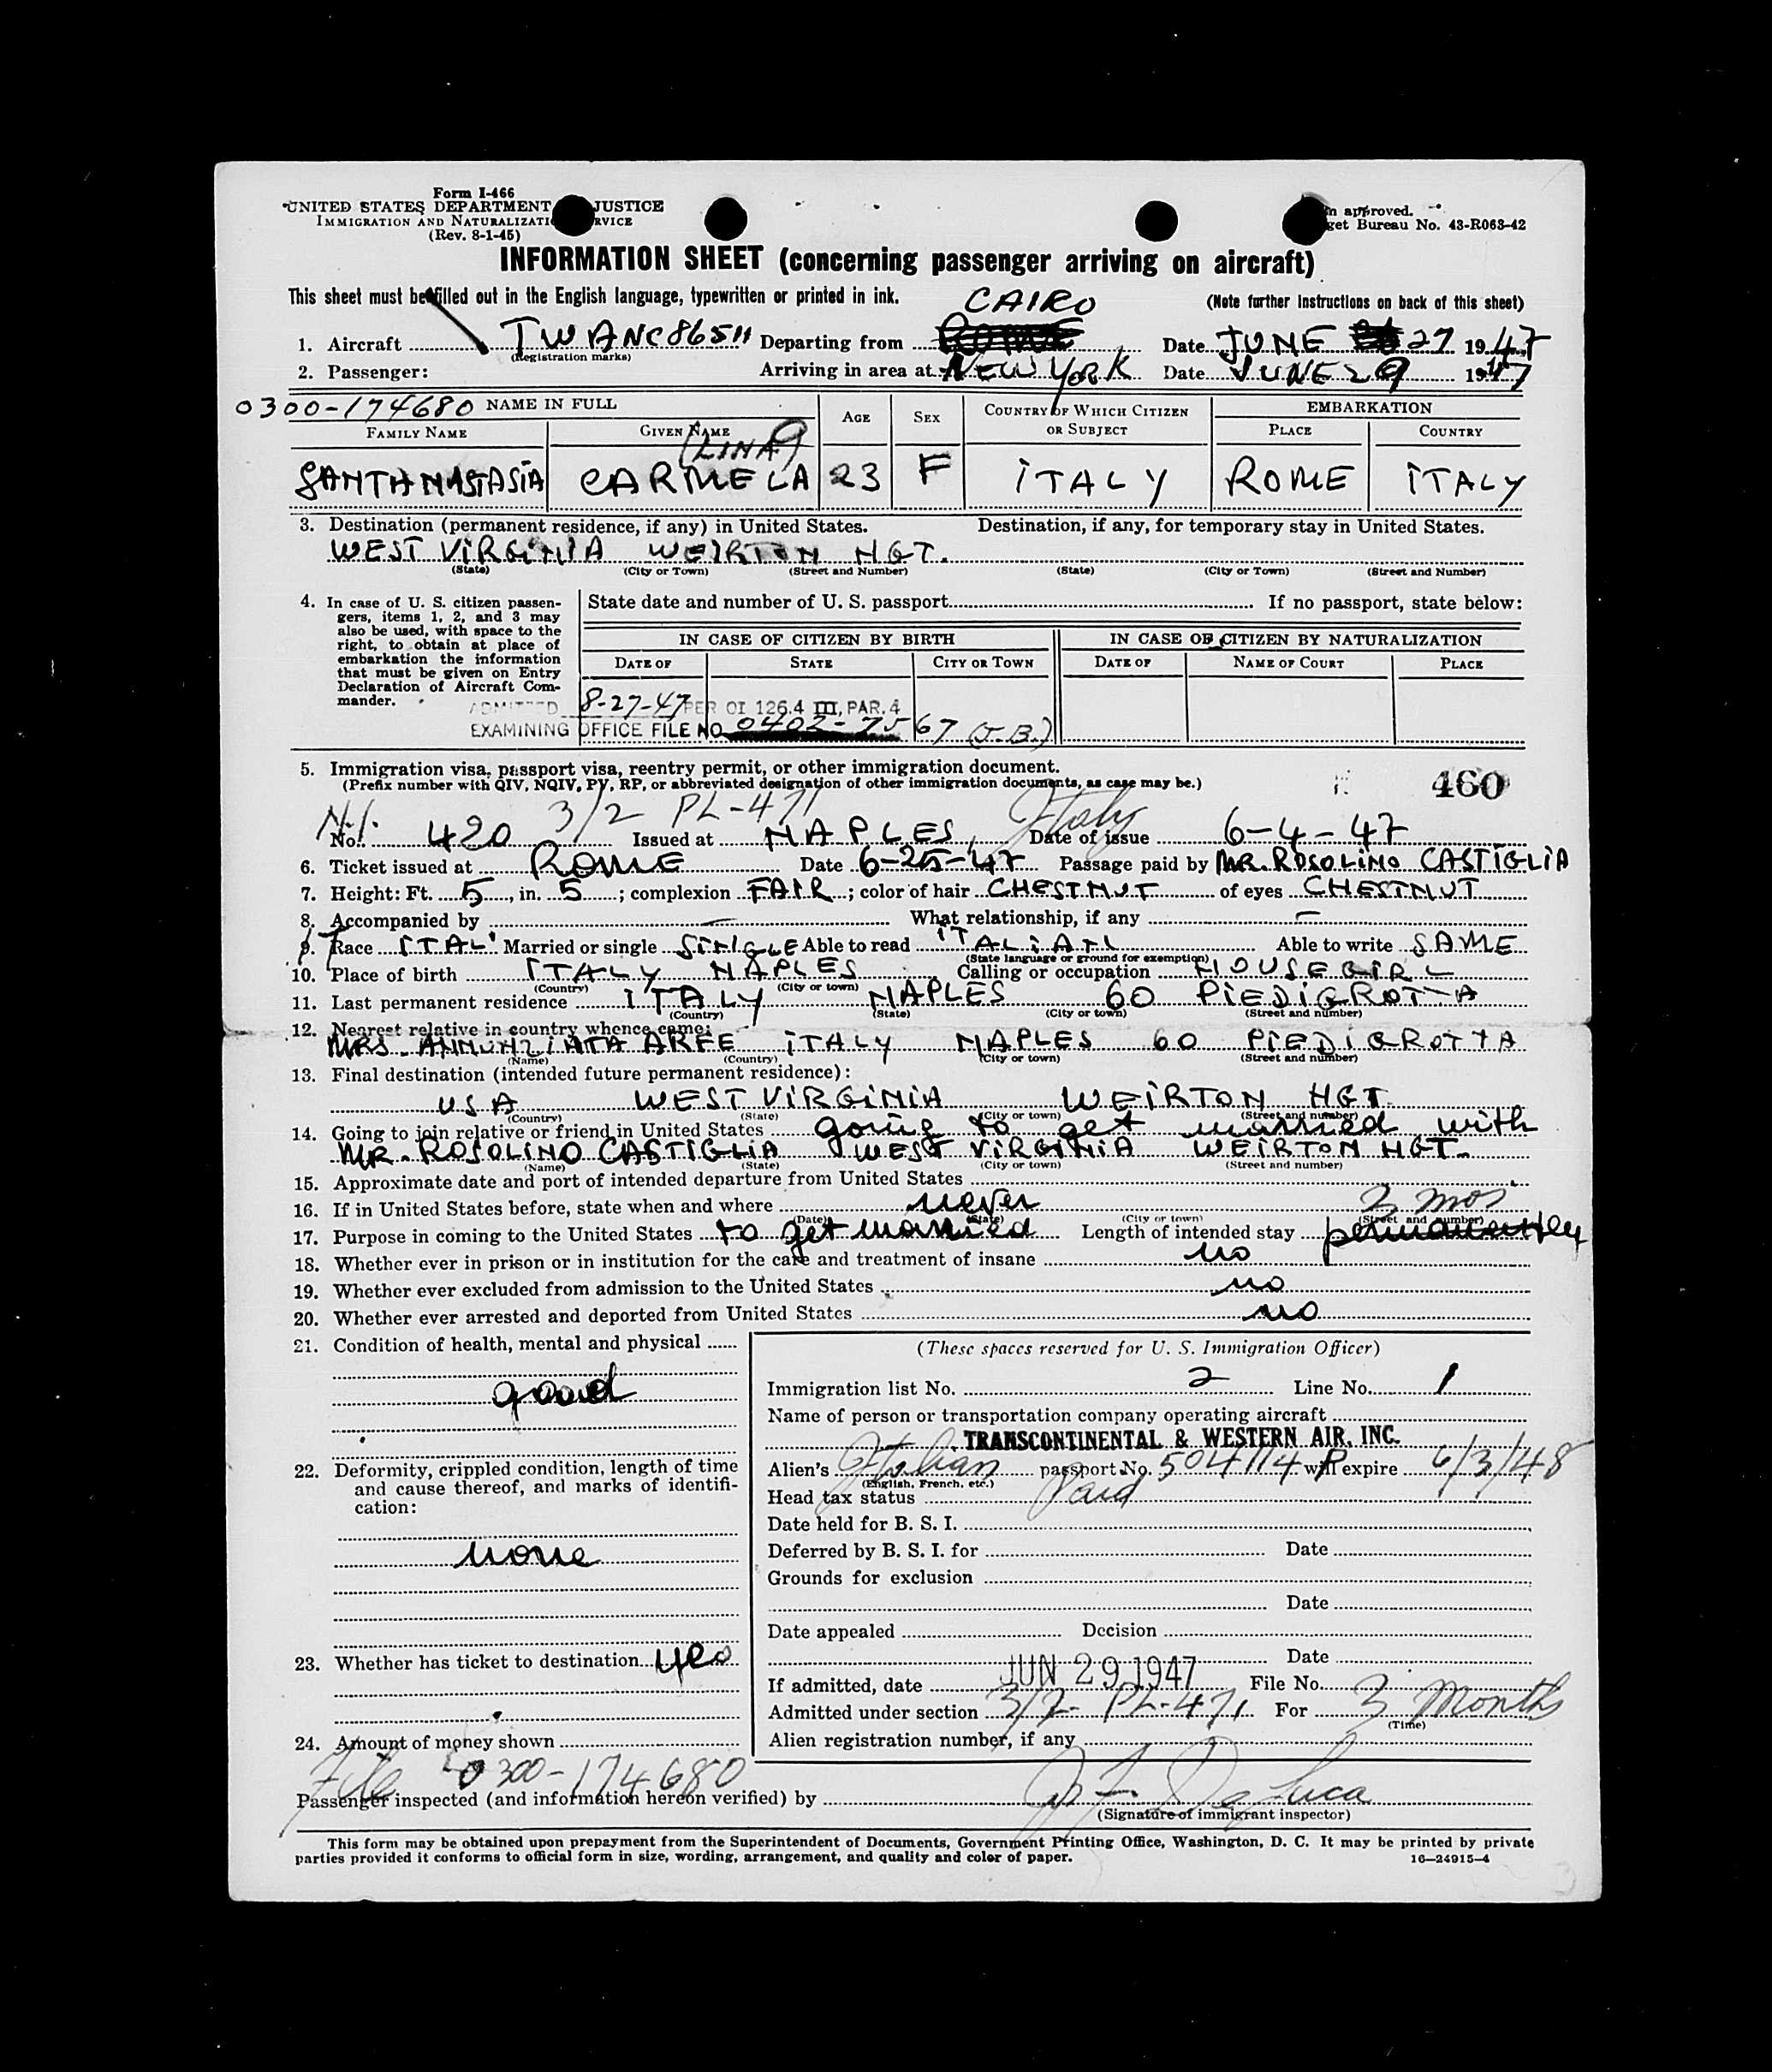 Form I-466
UNITED STATES DEPARTMENT JUSTICE
IMMIGRATION AND NATURALIZATI RVICE
(Rev. 8-1-45)
n approved.
get Bureau No. 43-R063-42
INFORMATION SHEET (concerning passenger arriving on aircraft)
This sheet must be filled out in the English language, typewritten or printed in ink.
(Note further instructions on back of this sheet)
CAIRO
1. Aircraft TWA NC86511 Departing from Date JUNE 27 1947
(Registration marks)
2. Passenger: Arriving in area at NEW YORK Date JUNE 29 1947
0300-174680 NAME IN FULL
AGE SEX COUNTRY OF WHICH CITIZEN OR SUBJECT EMBARKATION
FAMILY NAME GIVEN NAME PLACE COUNTRY
(LINA)
SANTANASTASIA CARMELA 23 F ITALY ROME ITALY
3. Destination (permanent residence, if any) in United States. Destination, if any, for temporary stay in United States.
WEST VIRGINIA WEIRTON HGT.
(State) (City or Town) (Street and Number) (State) (City or Town) (Street and Number)
4. In case of U. S. citizen passengers, items 1, 2, and 3 may also be used, with space to the right, to obtain at place of embarkation the information that must be given on Entry Declaration of Aircraft Commander.
State date and number of U. S. passport If no passport, state below:
IN CASE OF CITIZEN BY BIRTH IN CASE OF CITIZEN BY NATURALIZATION
DATE OF STATE CITY OR TOWN DATE OF NAME OF COURT PLACE
ADMITTED 8-27-47 PER OI 126.4 III, PAR. 4
EXAMINING OFFICE FILE NO 0402-7567 (J.B.)
5. Immigration visa, passport visa, reentry permit, or other immigration document.
(Prefix number with QIV, NQIV, PV, RP, or abbreviated designation of other immigration documents, as case may be.)
460
3/2 PL-471 Italy
No. 420 Issued at NAPLES, Date of issue 6-4-47
6. Ticket issued at ROME Date 6-25-47 Passage paid by MR. ROSOLINO CASTIGLIA
7. Height: Ft. 5, in. 5; complexion FAIR; color of hair CHESTNUT of eyes CHESTNUT
8. Accompanied by — What relationship, if any —
9. Race ITAL. Married or single SINGLE Able to read ITALIAN Able to write SAME
(State language or ground for exemption)
10. Place of birth ITALY NAPLES Calling or occupation HOUSEGIRL
(Country) (City or town)
11. Last permanent residence ITALY NAPLES 60 PIEDIGROTTA
(Country) (State) (City or town) (Street and number)
12. Nearest relative in country whence came:
MRS. ANNUNZIATA ARFE ITALY NAPLES 60 PIEDIGROTTA
(Name) (Country) (City or town) (Street and number)
13. Final destination (intended future permanent residence):
USA WEST VIRGINIA WEIRTON HGT
(Country) (State) (City or town) (Street and number)
14. Going to join relative or friend in United States going to get married with
MR. ROSOLINO CASTIGLIA WEST VIRGINIA WEIRTON HGT.
(Name) (State) (City or town) (Street and number)
15. Approximate date and port of intended departure from United States
16. If in United States before, state when and where never 3 mos
(Date) (State) (City or town) (Street and number)
17. Purpose in coming to the United States to get married Length of intended stay permanently
18. Whether ever in prison or in institution for the care and treatment of insane no
19. Whether ever excluded from admission to the United States no
20. Whether ever arrested and deported from United States no
21. Condition of health, mental and physical
good
22. Deformity, crippled condition, length of time and cause thereof, and marks of identification:
none
23. Whether has ticket to destination yes
24. Amount of money shown
(These spaces reserved for U. S. Immigration Officer)
Immigration list No. 2 Line No. 1
Name of person or transportation company operating aircraft
TRANSCONTINENTAL & WESTERN AIR, INC.
Alien's Italian passport No. 504114 P will expire 6/3/48
(English, French, etc.)
Head tax status Paid
Date held for B. S. I.
Deferred by B. S. I. for Date
Grounds for exclusion
Date
Date appealed Decision
Date
If admitted, date JUN 29 1947 File No.
Admitted under section 3/2- PL-471 For 3 Months
(Time)
Alien registration number, if any
File 0300-174680
Passenger inspected (and information hereon verified) by De Luca
(Signature of immigrant inspector)
This form may be obtained upon prepayment from the Superintendent of Documents, Government Printing Office, Washington, D. C. It may be printed by private
parties provided it conforms to official form in size, wording, arrangement, and quality and color of paper. 16—24915-4